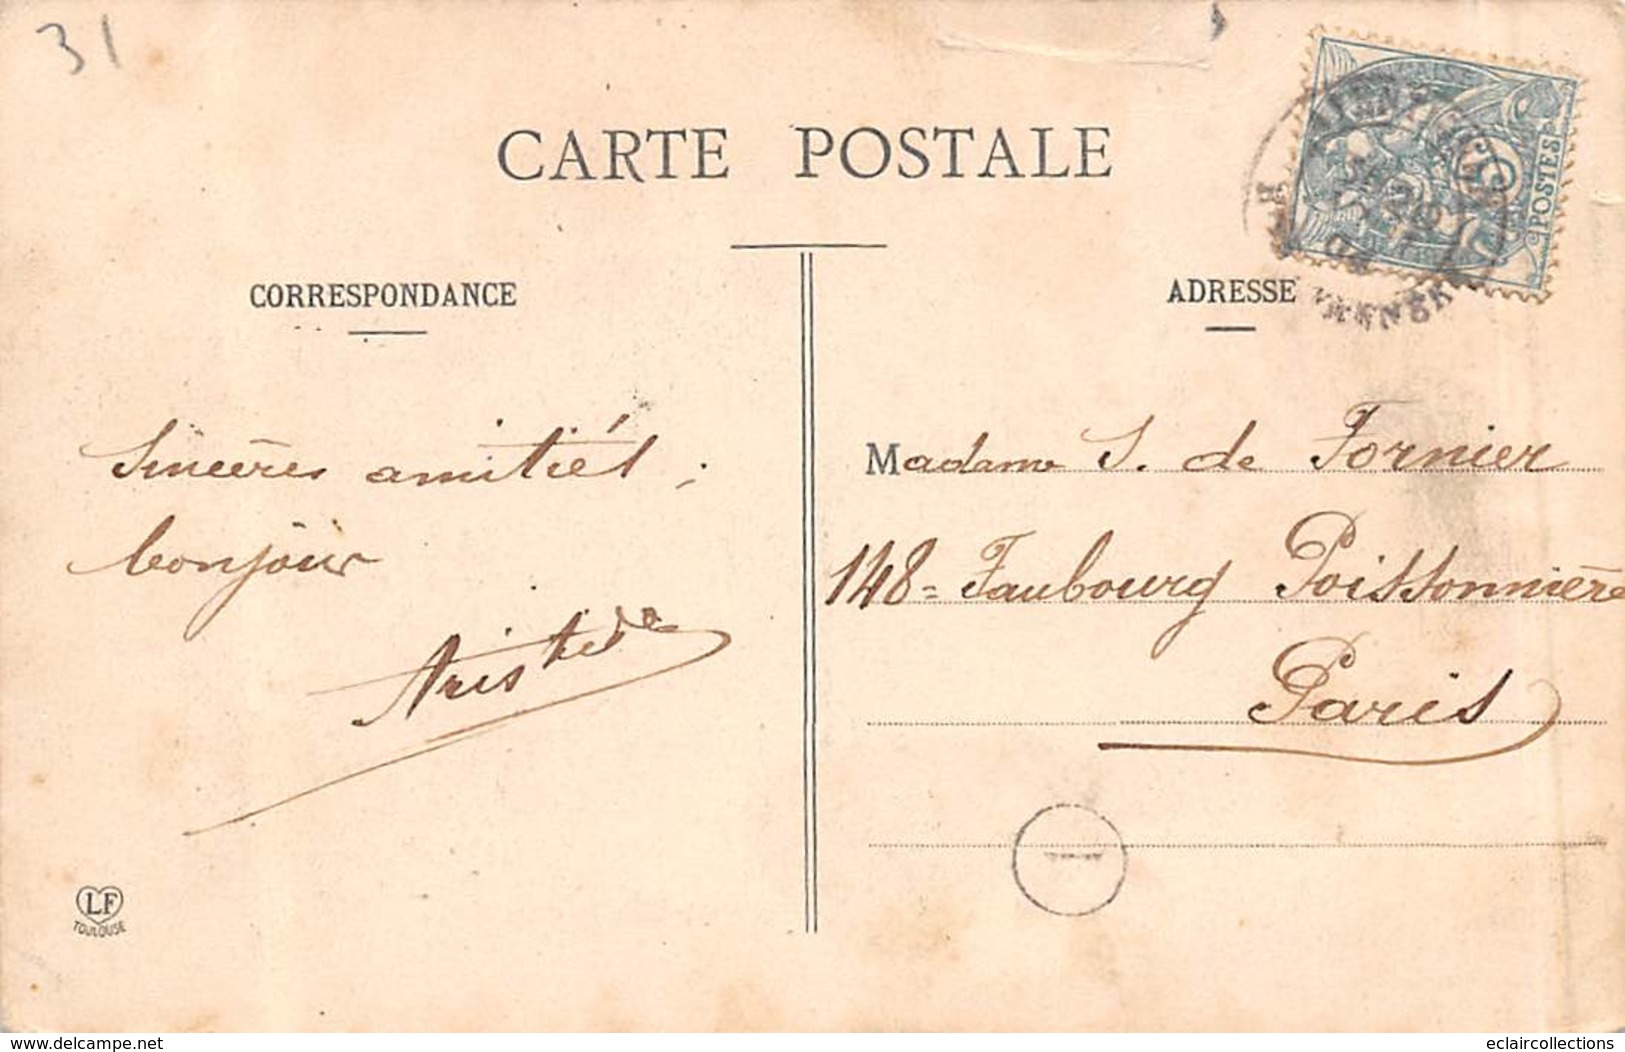 31
CARTE POSTALE
CORRESPONDANCE
ADRESSE
POSTES
5
Sincères amitiés ;
bonjour
Aristide
Madame S. de Fornier
148 = Faubourg Poissonnière
Paris
LF
TOULOUSE
www.delcampe.net
eclaircollections